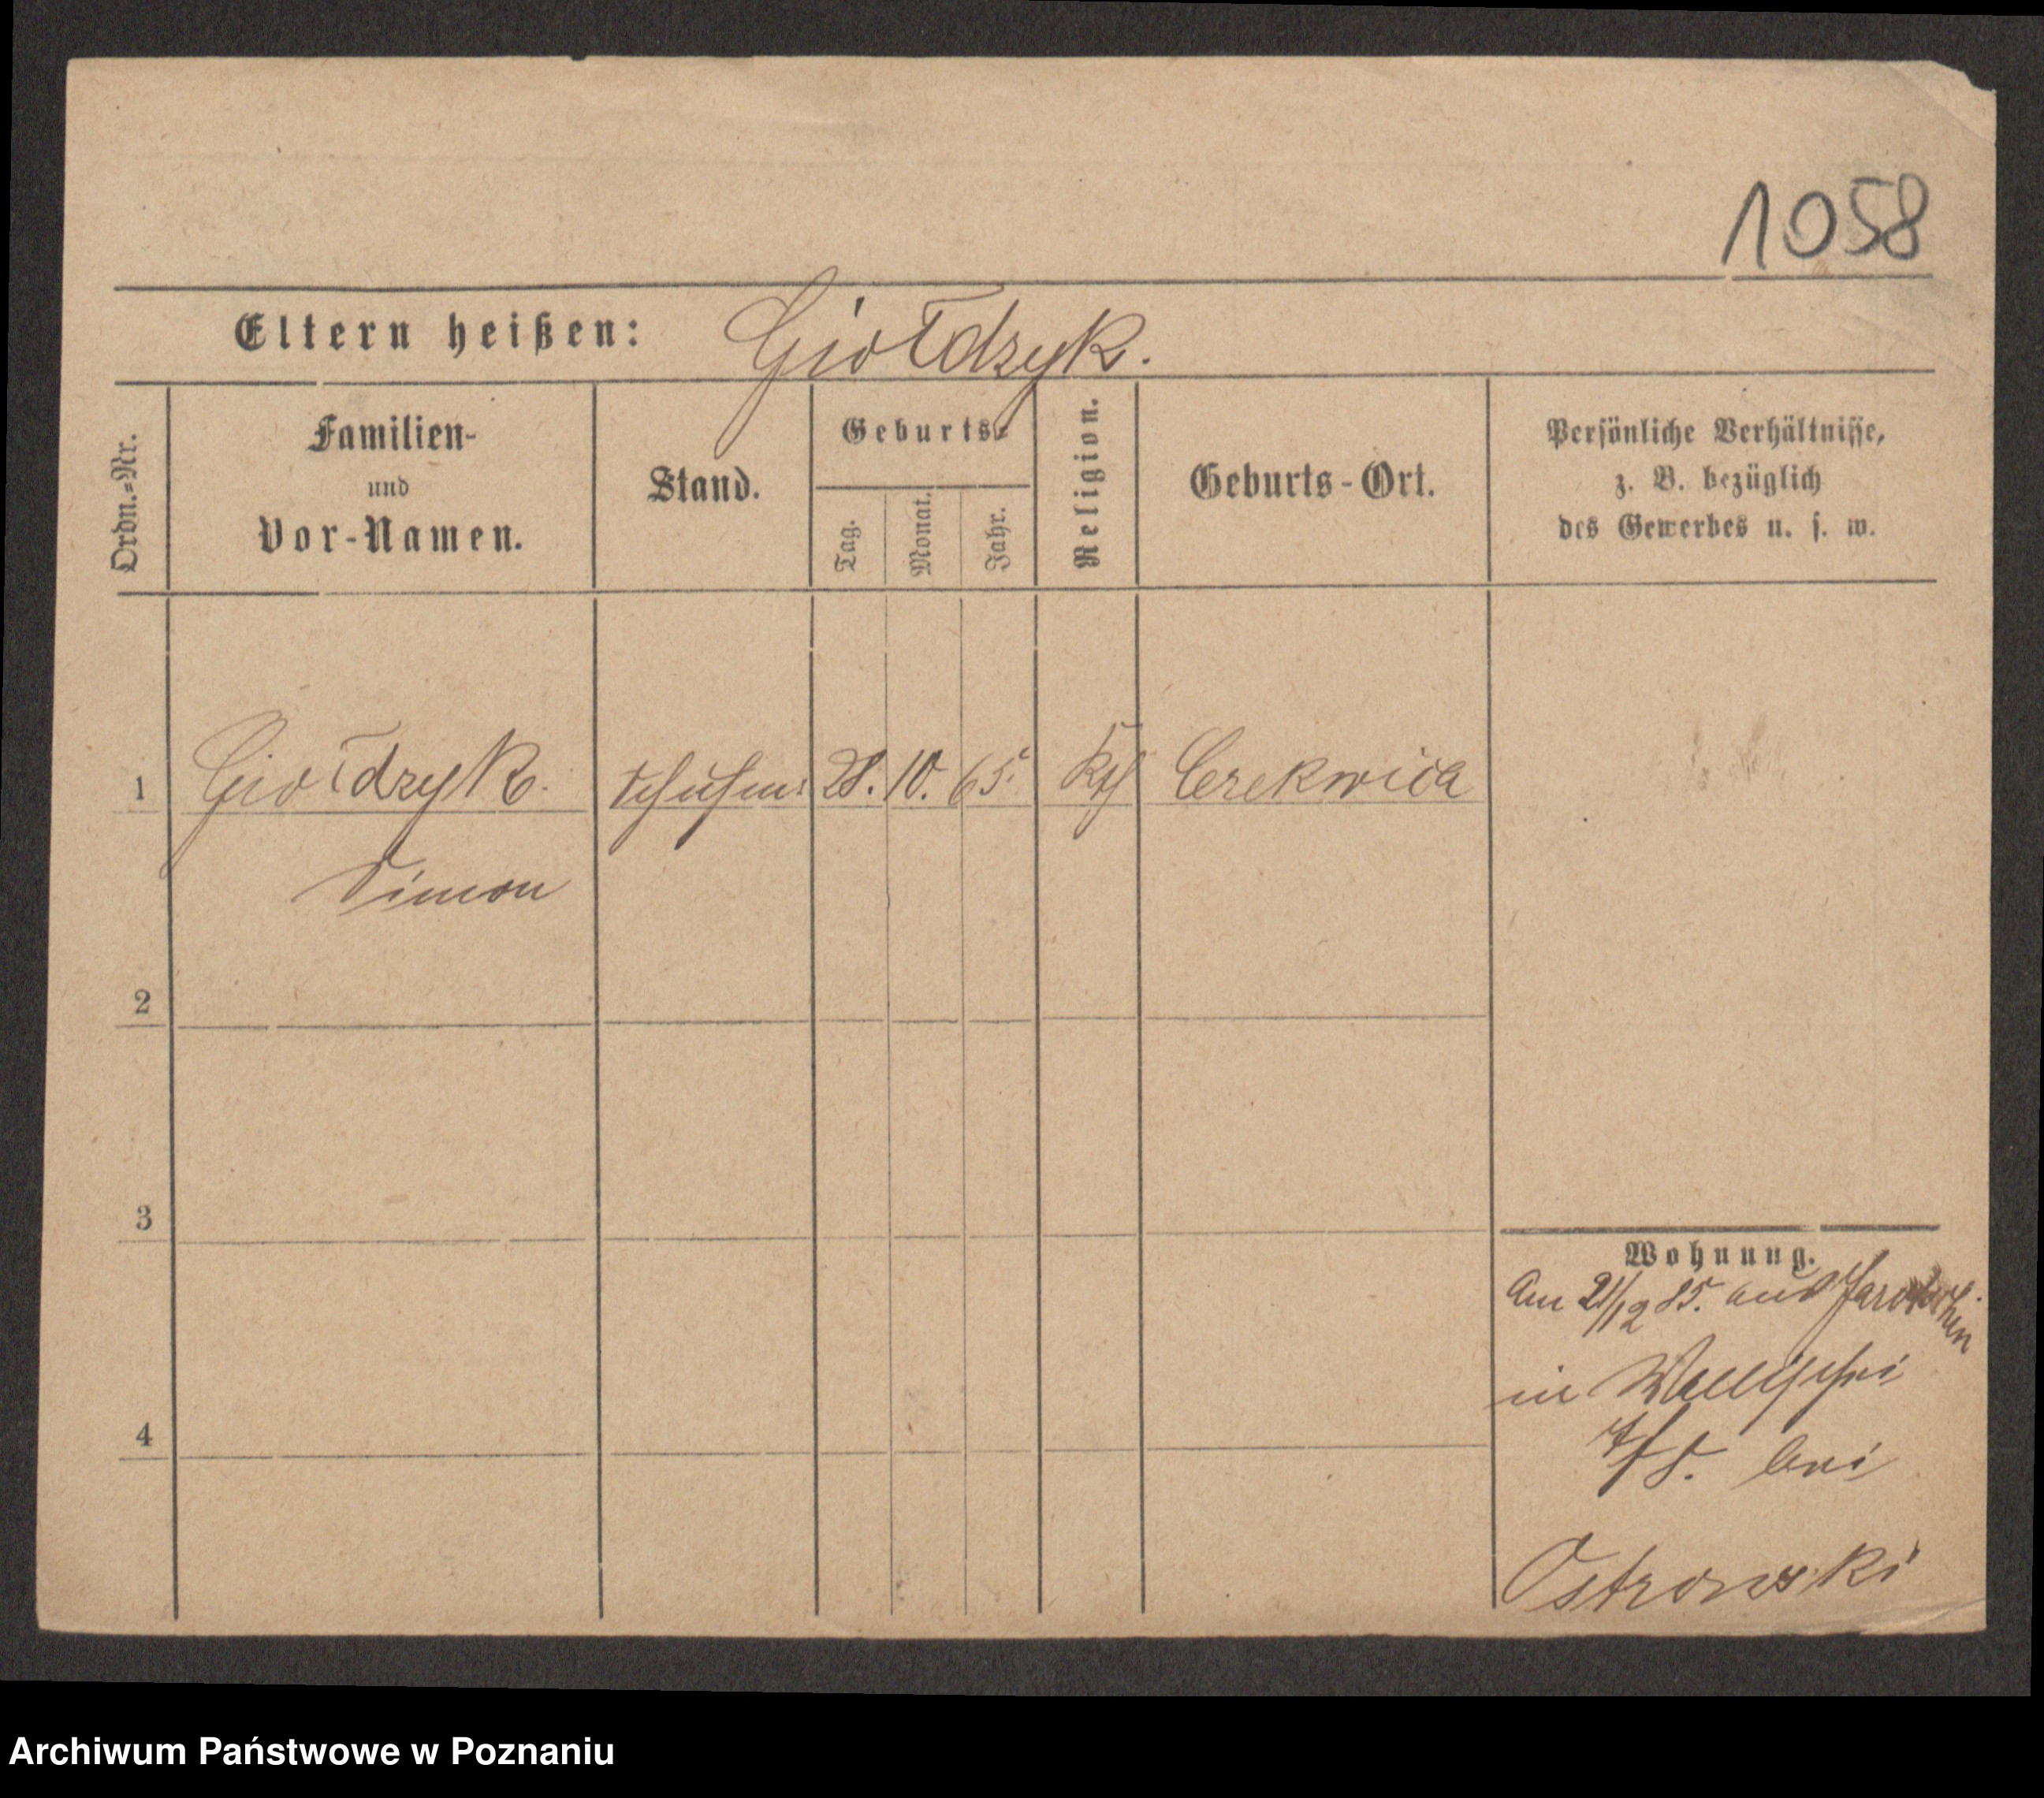 1058
Eltern heißen: Giołdzyk.
Ordn.-Nr.
Familien-
und
Vor-Namen.
Stand.
Geburts-
Tag.
Monat.
Jahr.
Religion.
Geburts-Ort.
Persönliche Verhältnisse,
z. B. bezüglich
des Gewerbes u. s. w.
1 Giołdzyk. Schuhm: 28. 10. 65. Kth Cerekwica
Simon
2
3
4
Wohnung.
Am 21/12 85. aus Jarotschin
in Wallischei
bei
Ostrowski
Archiwum Państwowe w Poznaniu